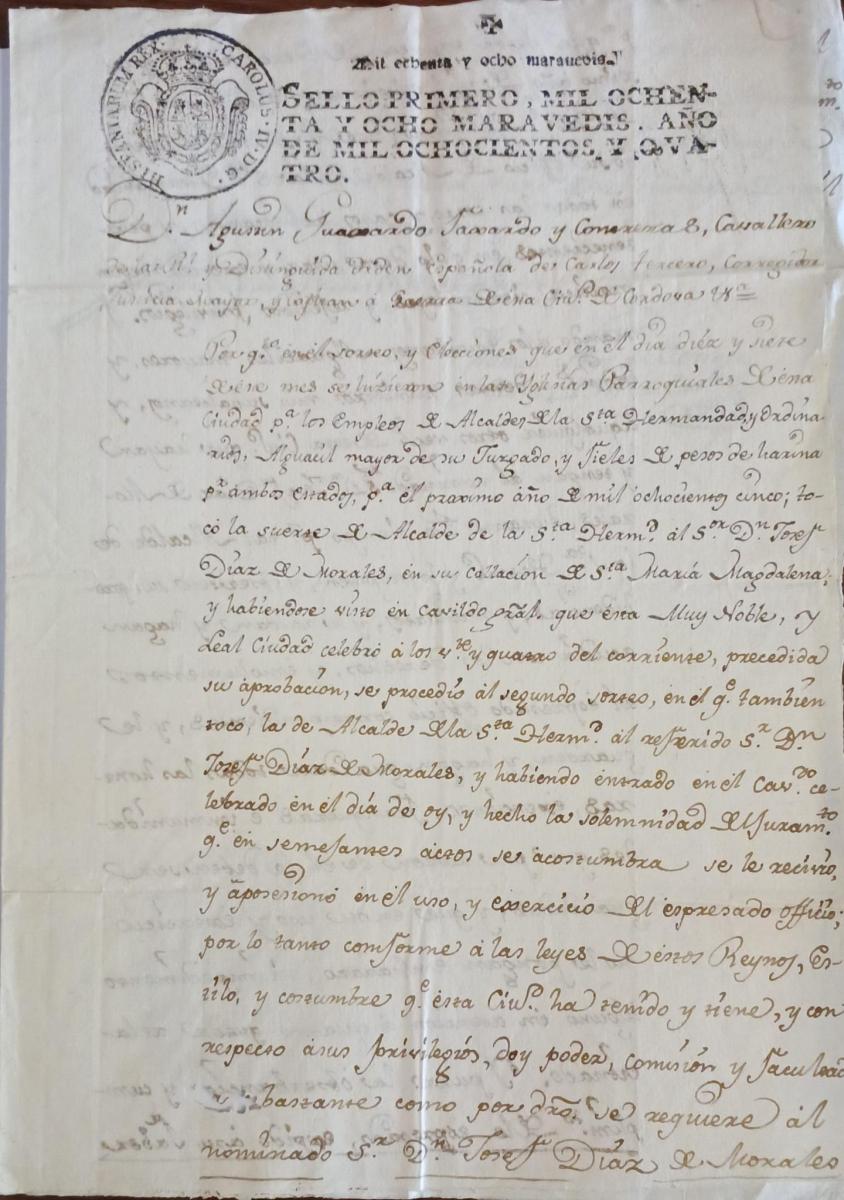 HISPANIARUM REX. CAROLUS. IV. D. G.
Mil ochenta y ocho maravedis.
SELLO PRIMERO, MIL OCHEN-
TA Y OCHO MARAVEDIS. AÑO
DE MIL OCHOCIENTOS, Y QVA-
TRO.
Dn. Agustin Guaxardo Faxardo y Contreras, Cavallero
de la Rl. y Distinguida Orden Española de Carlos tercero, Corregidor
Justicia mayor, y Capitan á Guerra de esta Ciud. de Cordova &a
Por q.e en el sorteo, y Elecciones que en el dia diéz y siete
de este mes se hizieron en las Yglesias Parroquiales de esta
Ciudad p.a los Empleos de Alcaldes de la S.ta Hermandad, y Ordina
rios, Alguacil mayor de su Juzgado, y fieles de pesos de harina
p.r ambos Estados, p.a el proximo año de mil ochocientos cinco; to-
có la suerte de Alcalde de la S.ta Herm.d ál S.or D.n Josef
Diaz de Morales, en su Collacion de S.ta María Magdalena;
y habiendose visto en Cavildo gral. que ésta Muy Noble, y
Leal Ciudad celebró á los v.te y quatro del corriente, precedida
su aprobacion, se procedió ál segundo sorteo, en el q.e tambien
tocó, la de Alcalde de la S.ta Herm.d ál referido S.r D.n
Josef Diaz de Morales, y habiendo entrado en el Cav.do ce-
lebrado en el día de oy, y hecho la solemnidad del Juram.to
q.e en semejantes actos se acostumbra se le recivio,
y aposesionó en el uso, y exercicio del espresado officio;
por lo tanto comforme á las leyes de estos Reynos, Es-
tilo, y costumbre q.e ésta Ciu.d ha tenido y tiene, y con
respecto á sus privilegios, doy poder, comision y facultad
bastante como por dro. se requiere ál
nominado S.r D.n Josef Diaz de Morales